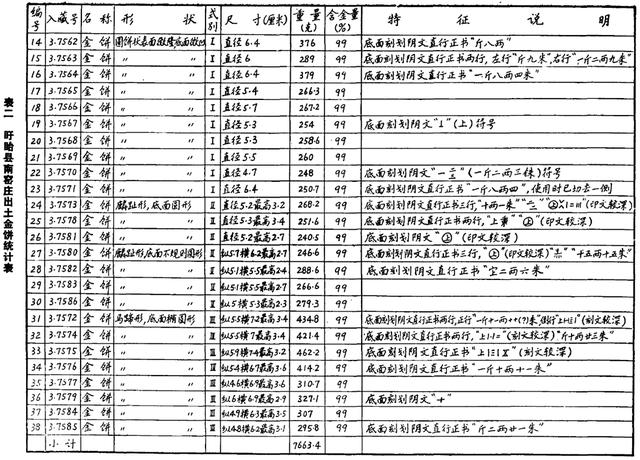 表二 盱眙县南窑庄出土金饼统计表
编号 入藏号 名称 形状 式别 尺寸(厘米) 重量(克) 含金量(%) 特征说明
14 3.7562 金饼 圆饼状表面微隆底面微凹 Ⅰ 直径6.4 376 99 底面刻划阴文直行正书"斤八两"
15 3.7563 金饼 〃 Ⅰ 直径6 289 99 底面刻划阴文直行正书两行,左行"斤九朱",右行"一斤二两九朱"
16 3.7564 金饼 〃 Ⅰ 直径6.4 379 99 底面刻划阴文直行正书"一斤八两四朱"
17 3.7565 金饼 〃 Ⅰ 直径5.4 266.3 99
18 3.7566 金饼 〃 Ⅰ 直径5.7 267.2 99
19 3.7567 金饼 〃 Ⅰ 直径5.3 254 99 底面刻划阴文"⊥"(上)符号
20 3.7568 金饼 〃 Ⅰ 直径5.3 258.6 99
21 3.7569 金饼 〃 Ⅰ 直径5.5 260 99
22 3.7570 金饼 〃 Ⅰ 直径4.7 248 99 底面刻划阴文(一斤二两三铢)符号
23 3.7571 金饼 〃 Ⅰ 直径6.4 250.7 99 底面刻划阴文直行正书"一斤八两四",使用时已切去一侧
24 3.7573 金饼 麟趾形,底面圆形 Ⅱ 直径5.2最高3.2 268.2 99 底面刻划阴文直行正书三行,"十两一朱"(印文较深)
25 3.7578 金饼 〃 Ⅱ 直径5.3最高3.4 251.6 99 底面刻划阴文直行正书两行,"上"(印文较深)
26 3.7581 金饼 〃 Ⅱ 直径5.2最高2.7 240.5 99 底面刻划阴文"上"(印文较深)
27 3.7580 金饼 麟趾形底面不规则圆形 Ⅱ 纵5.7横6.2最高2.7 246.6 99 底面刻划阴文直行正书三行,"上"(印文较深)"十五两十五朱"
28 3.7582 金饼 〃 Ⅱ 纵5.1横5.5最高2.4 288.6 99 底面刻划阴文直行正书"空二两六朱"
29 3.7583 金饼 〃 Ⅱ 纵5.1横5.5最高2.7 266.6 99
30 3.7586 金饼 〃 Ⅱ 纵5.1横5.3最高2.3 279.3 99
31 3.7572 金饼 马蹄形,底面椭圆形 Ⅲ 纵5.5横7.2最高3.4 434.8 99 底面刻划阴文直行正书两行,正行(刻文较深)
32 3.7574 金饼 〃 Ⅲ 纵5.5横7最高3.4 421.4 99 底面刻划阴文直行正书两行,(刻文较深)"斤十两廿三朱"
33 3.7575 金饼 〃 Ⅲ 纵5.9横7.4最高3.2 462.2 99 底面刻划阴文直行正书(刻文较深)
34 3.7576 金饼 〃 Ⅲ 纵5.4横6.7最高3.6 414.2 99 底面刻划阴文直行正书"一斤十两十一朱"
35 3.7577 金饼 〃 Ⅲ 纵4.6横6.9最高3.6 310.7 99
36 3.7579 金饼 〃 Ⅲ 纵6横6.9最高2.9 327.1 99 底面刻划阴文"+"
37 3.7584 金饼 〃 Ⅲ 纵4.9横6.3最高3.5 307 99
38 3.7585 金饼 〃 Ⅲ 纵4.8横6.2最高3.1 295.8 99 底面刻划阴文直行正书"斤二两廿一朱"
小计 7663.4